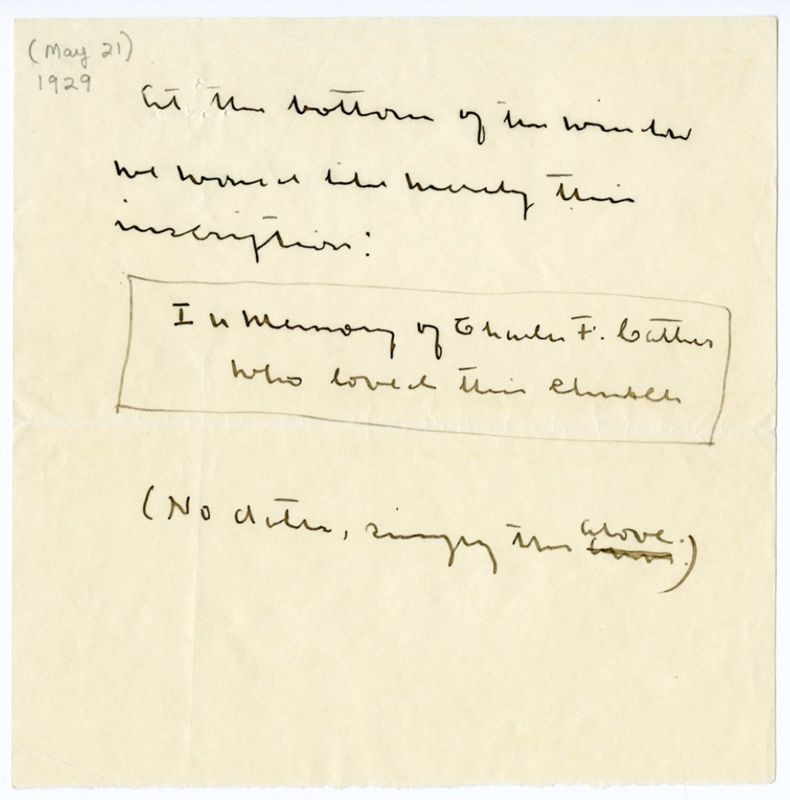 (May 21)
1929
At the bottom of the window
we would like merely this
inscription:
In Memory of Charles F. Cather
who loved this Church
(No dates, simply the above.)